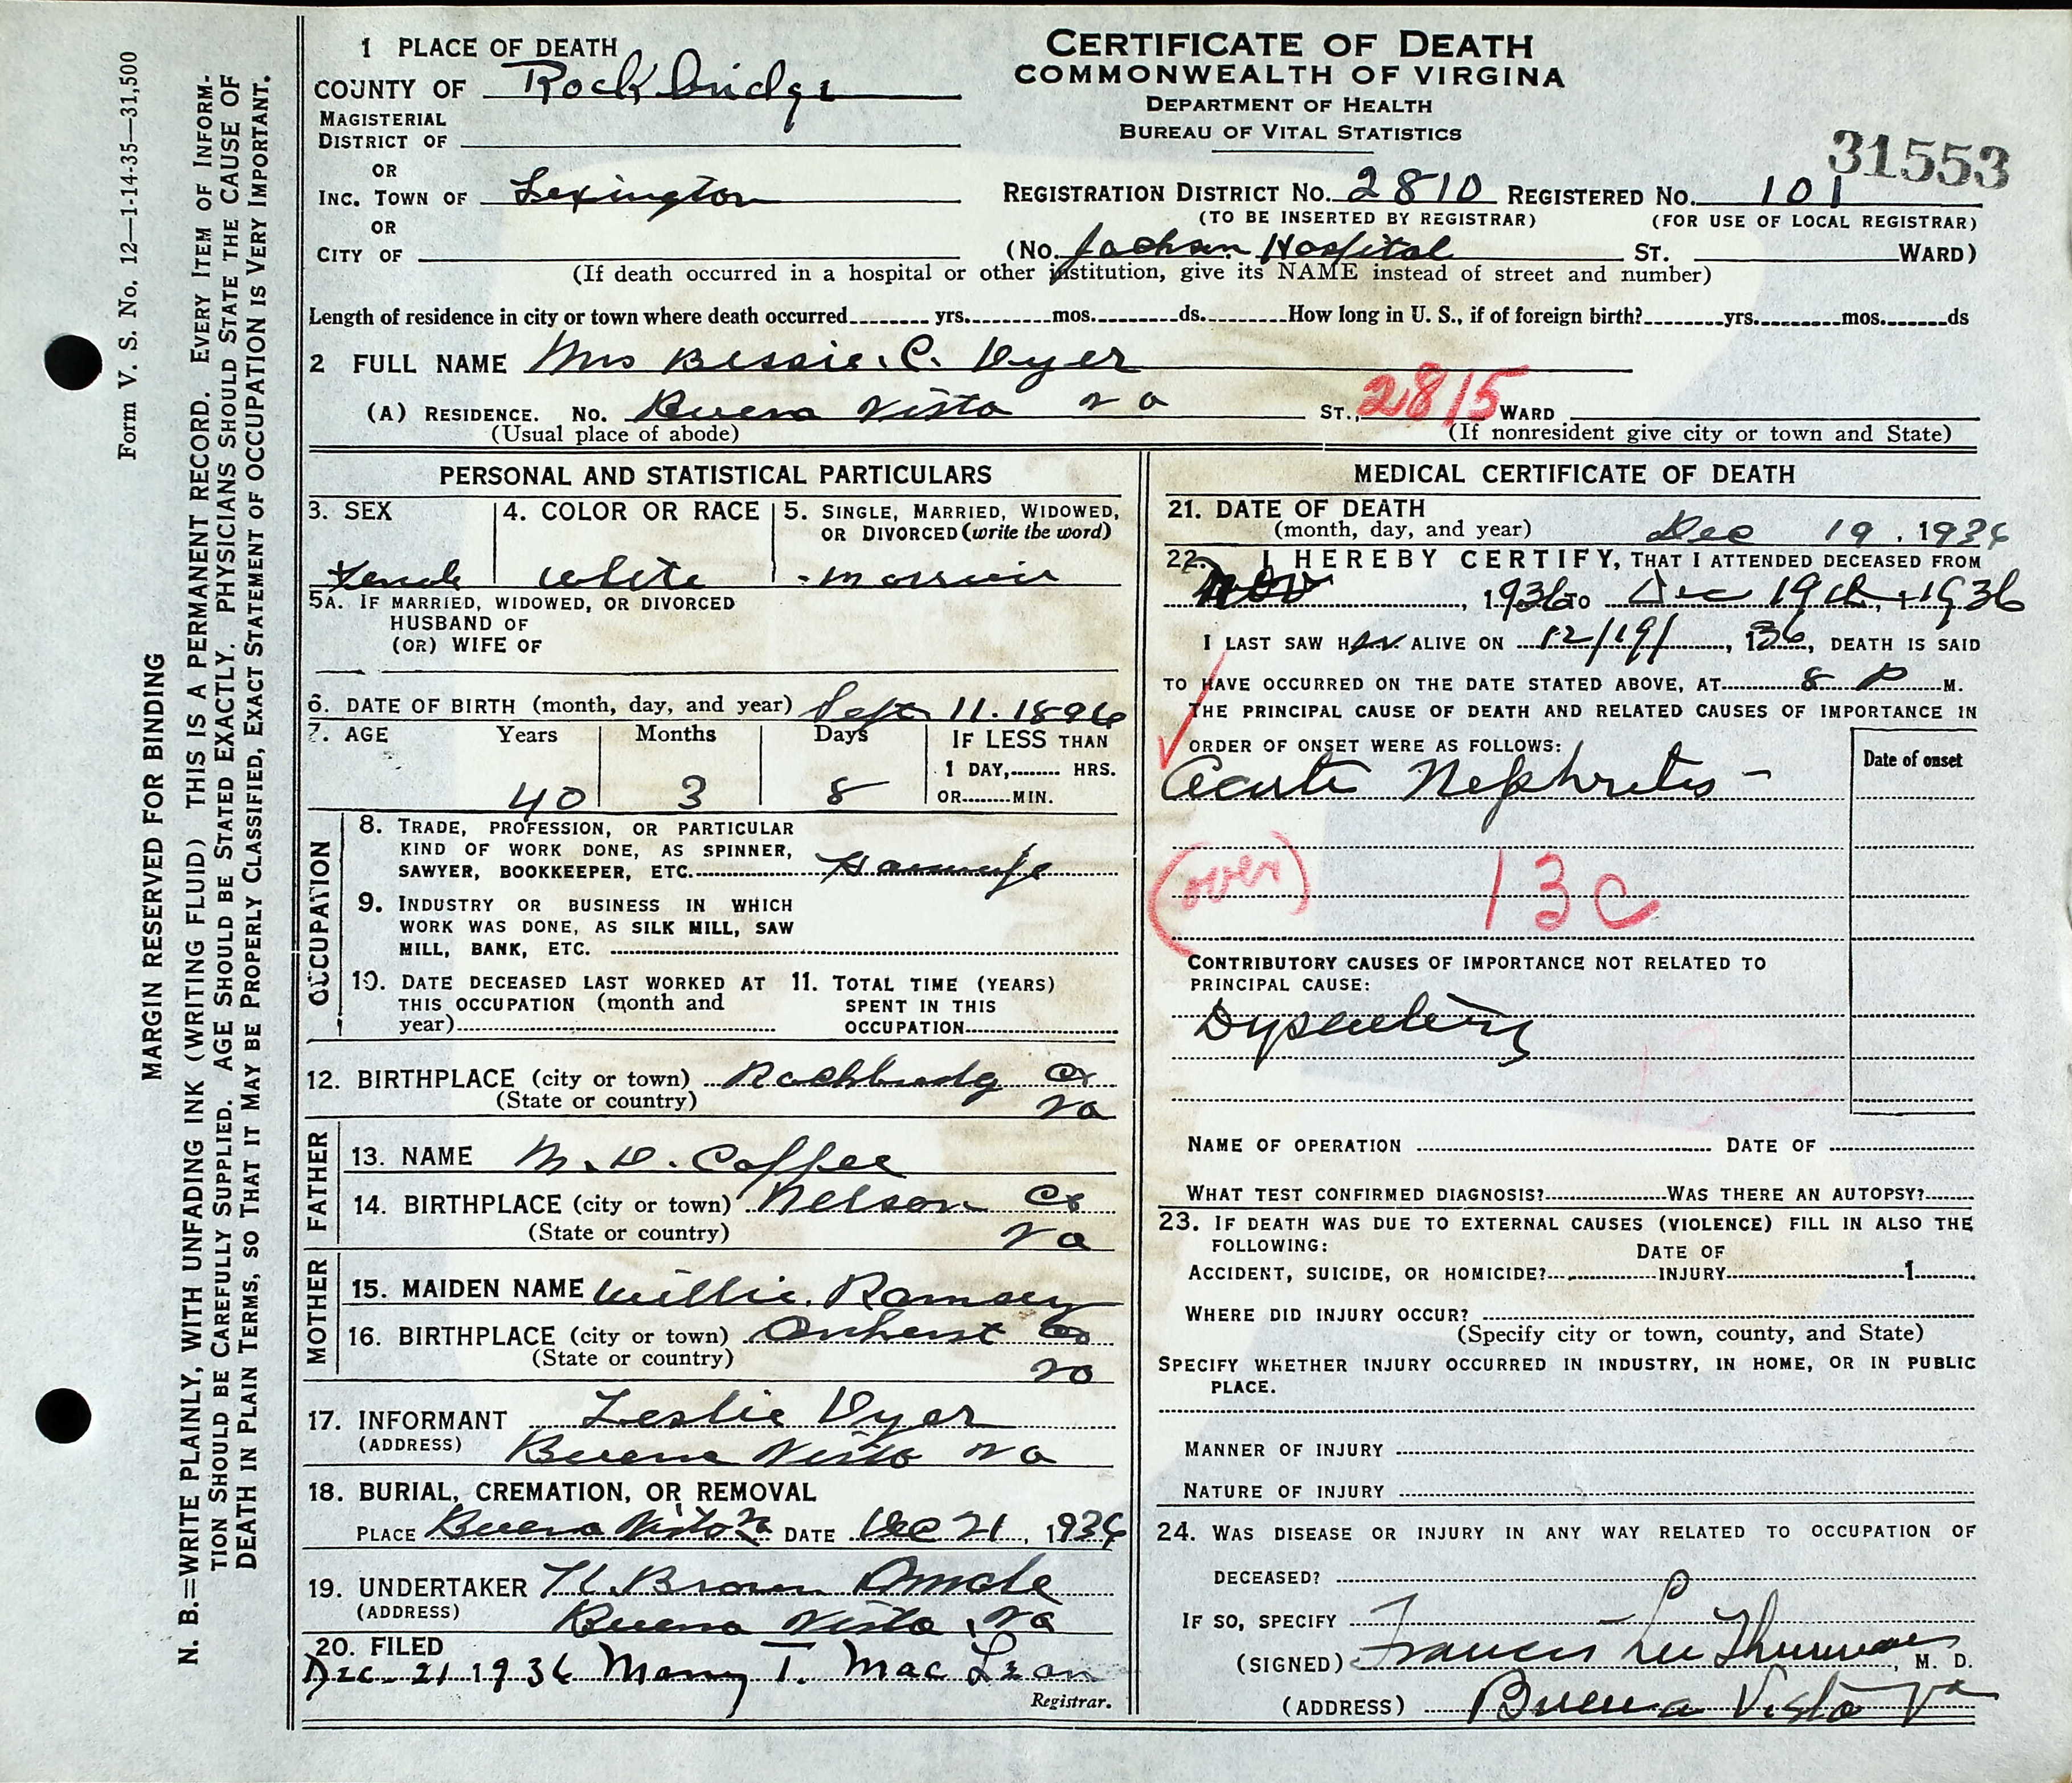 Form V. S. No. 12—1-14-35—31,500
MARGIN RESERVED FOR BINDING
N. B.=WRITE PLAINLY, WITH UNFADING INK (WRITING FLUID) THIS IS A PERMANENT RECORD. EVERY ITEM OF INFORM-
TION SHOULD BE CAREFULLY SUPPLIED. AGE SHOULD BE STATED EXACTLY. PHYSICIANS SHOULD STATE THE CAUSE OF
DEATH IN PLAIN TERMS, SO THAT IT MAY BE PROPERLY CLASSIFIED, EXACT STATEMENT OF OCCUPATION IS VERY IMPORTANT.
CERTIFICATE OF DEATH
COMMONWEALTH OF VIRGINA
DEPARTMENT OF HEALTH
BUREAU OF VITAL STATISTICS
31553
1 PLACE OF DEATH
COUNTY OF Rockbridge
MAGISTERIAL
DISTRICT OF
OR
INC. TOWN OF Lexington
OR
CITY OF
REGISTRATION DISTRICT NO. 2810 REGISTERED NO. 101
(TO BE INSERTED BY REGISTRAR) (FOR USE OF LOCAL REGISTRAR)
(NO. Jackson Hospital ST. WARD)
(If death occurred in a hospital or other institution, give its NAME instead of street and number)
Length of residence in city or town where death occurred yrs. mos. ds. How long in U. S., if of foreign birth? yrs. mos. ds
2 FULL NAME Mrs Bessie. C. Dyer
(A) RESIDENCE. NO. Buena Vista Va ST., 2815 WARD
(Usual place of abode) (If nonresident give city or town and State)
PERSONAL AND STATISTICAL PARTICULARS
3. SEX 4. COLOR OR RACE 5. SINGLE, MARRIED, WIDOWED,
OR DIVORCED (write the word)
Female White Married
5A. IF MARRIED, WIDOWED, OR DIVORCED
HUSBAND OF
(OR) WIFE OF
6. DATE OF BIRTH (month, day, and year) Sept 11. 1896
7. AGE Years Months Days IF LESS THAN
1 DAY, HRS.
OR MIN.
40 3 8
OCCUPATION
8. TRADE, PROFESSION, OR PARTICULAR
KIND OF WORK DONE, AS SPINNER,
SAWYER, BOOKKEEPER, ETC. Housewife
9. INDUSTRY OR BUSINESS IN WHICH
WORK WAS DONE, AS SILK MILL, SAW
MILL, BANK, ETC.
10. DATE DECEASED LAST WORKED AT 11. TOTAL TIME (YEARS)
THIS OCCUPATION (month and SPENT IN THIS
year) OCCUPATION
12. BIRTHPLACE (city or town) Rockbridg Co
(State or country) Va
FATHER
13. NAME M. D. Coffee
14. BIRTHPLACE (city or town) Nelson Co
(State or country) Va
MOTHER
15. MAIDEN NAME Willie Ramsey
16. BIRTHPLACE (city or town) Amherst Co
(State or country) Va
17. INFORMANT Leslie Dyer
(ADDRESS) Buena Vista Va
18. BURIAL, CREMATION, OR REMOVAL
PLACE Buena Vista Va DATE Dec 21, 1936
19. UNDERTAKER Brown
(ADDRESS) Buena Vista, Va
20. FILED
Dec. 21 1936 Mary T. MacLean
Registrar.
MEDICAL CERTIFICATE OF DEATH
21. DATE OF DEATH
(month, day, and year) Dec 19, 1936
22. I HEREBY CERTIFY, THAT I ATTENDED DECEASED FROM
Nov, 1936 TO Dec 19th, 1936
I LAST SAW Her ALIVE ON 12/19/, 136, DEATH IS SAID
TO HAVE OCCURRED ON THE DATE STATED ABOVE, AT 8 P M.
THE PRINCIPAL CAUSE OF DEATH AND RELATED CAUSES OF IMPORTANCE IN
ORDER OF ONSET WERE AS FOLLOWS:
Date of onset
Acute Nephritis -
(over) 13 c
CONTRIBUTORY CAUSES OF IMPORTANCE NOT RELATED TO
PRINCIPAL CAUSE:
Dysentery
NAME OF OPERATION DATE OF
WHAT TEST CONFIRMED DIAGNOSIS? WAS THERE AN AUTOPSY?
23. IF DEATH WAS DUE TO EXTERNAL CAUSES (VIOLENCE) FILL IN ALSO THE
FOLLOWING:
DATE OF
ACCIDENT, SUICIDE, OR HOMICIDE? INJURY 1
WHERE DID INJURY OCCUR?
(Specify city or town, county, and State)
SPECIFY WHETHER INJURY OCCURRED IN INDUSTRY, IN HOME, OR IN PUBLIC
PLACE.
MANNER OF INJURY
NATURE OF INJURY
24. WAS DISEASE OR INJURY IN ANY WAY RELATED TO OCCUPATION OF
DECEASED?
IF SO, SPECIFY
(SIGNED) Francis Lee Thurman, M. D.
(ADDRESS) Buena Vista Va